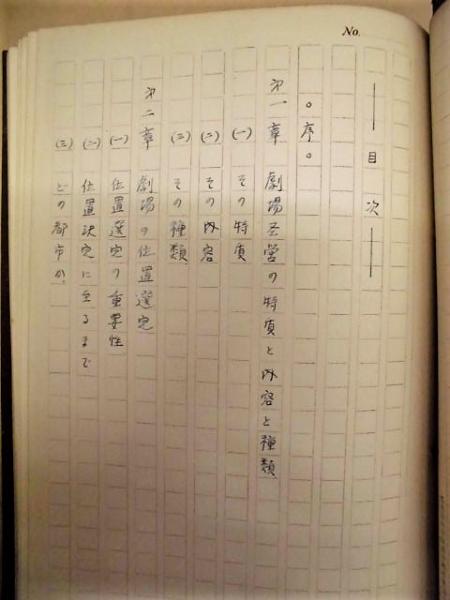 No.
── 目次 ──
。序。
第一章 劇場圣営の特質と内容と種類
(一) その特質
(二) その内容
(三) その種類
第二章 劇場の位置選定
(一) 位置選定の重要性
(二) 位置決定に至るまで
(三) どの都市か。